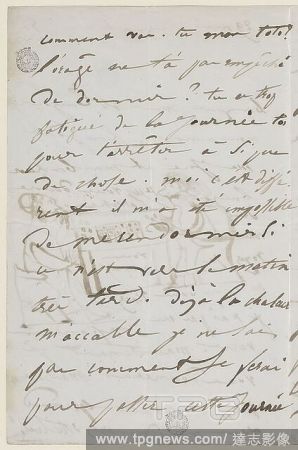 comment vas-tu mon toto?
l'orage ne t'a pas empêché
de dormir? tu es trop
fatigué de la journée toi
pour t'arrêter à si peu
de chose. moi c'est diffé
rent il m'a été impossible
de me rendormir si
ce n'est vers le matin
très tard. déjà la chaleur
m'accable je ne sai
pas comment je ferai
pour passer cette journée
TPG
www.tpgnews.com/達志影像